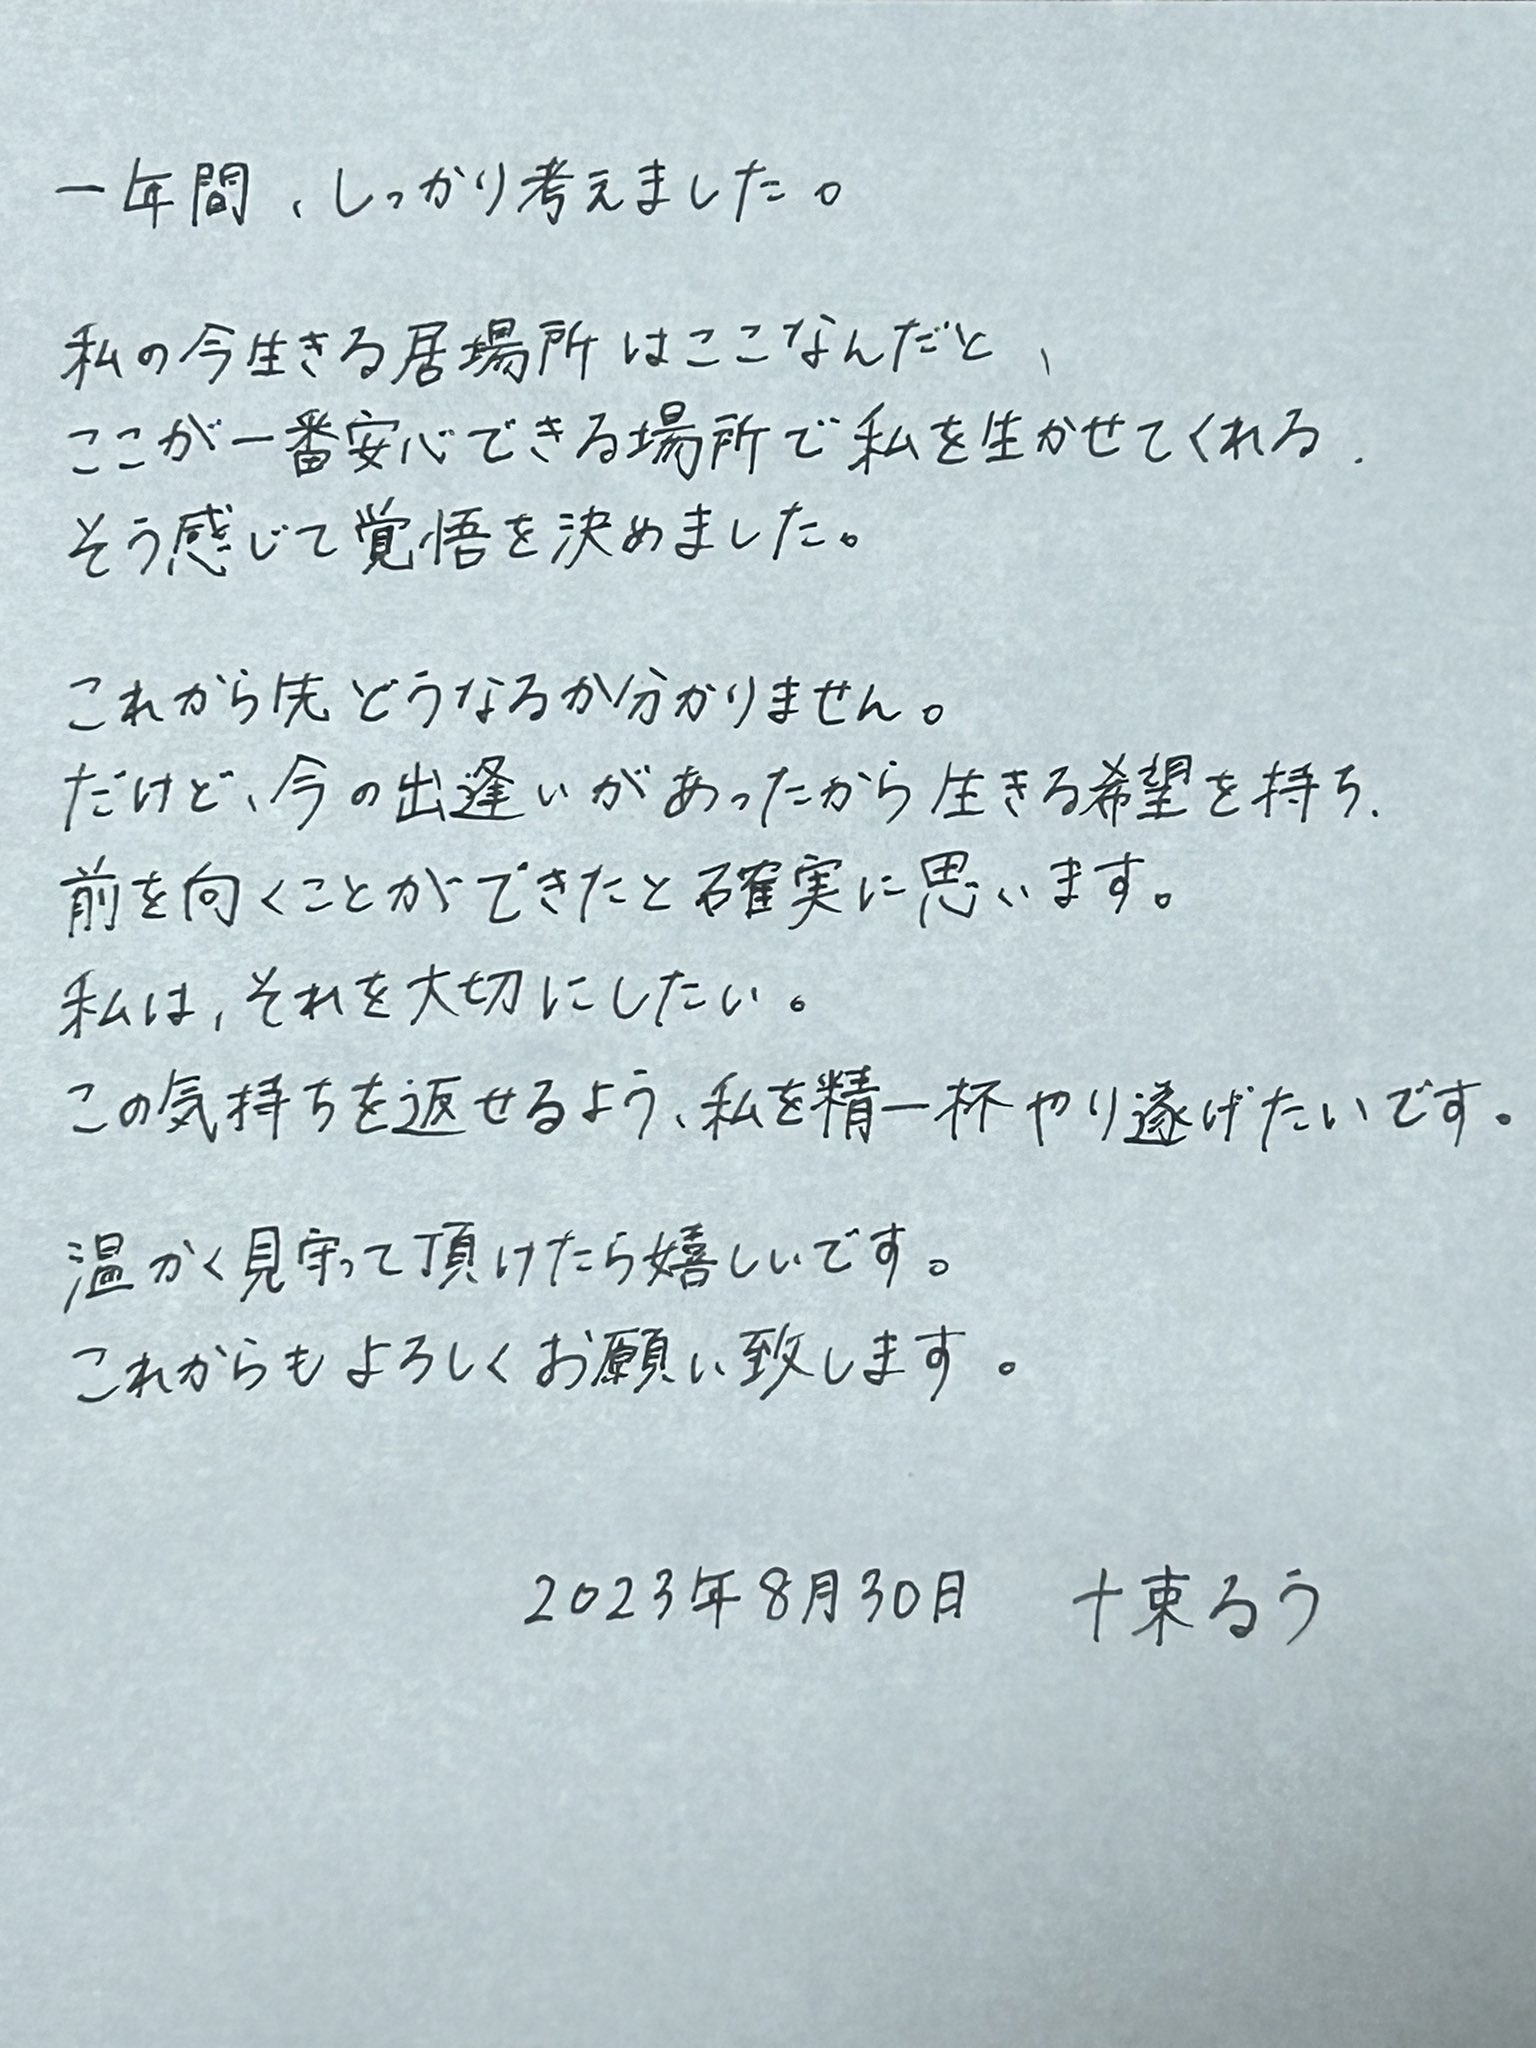 一年間、しっかり考えました。
私の今生きる居場所はここなんだと、
ここが一番安心できる場所で私を生かせてくれる、
そう感じて覚悟を決めました。
これから先どうなるか分かりません。
だけど、今の出逢いがあったから生きる希望を持ち、
前を向くことができたと確実に思います。
私は、それを大切にしたい。
この気持ちを返せるよう、私を精一杯やり遂げたいです。
温かく見守って頂けたら嬉しいです。
これからもよろしくお願い致します。
2023年8月30日 十束るう